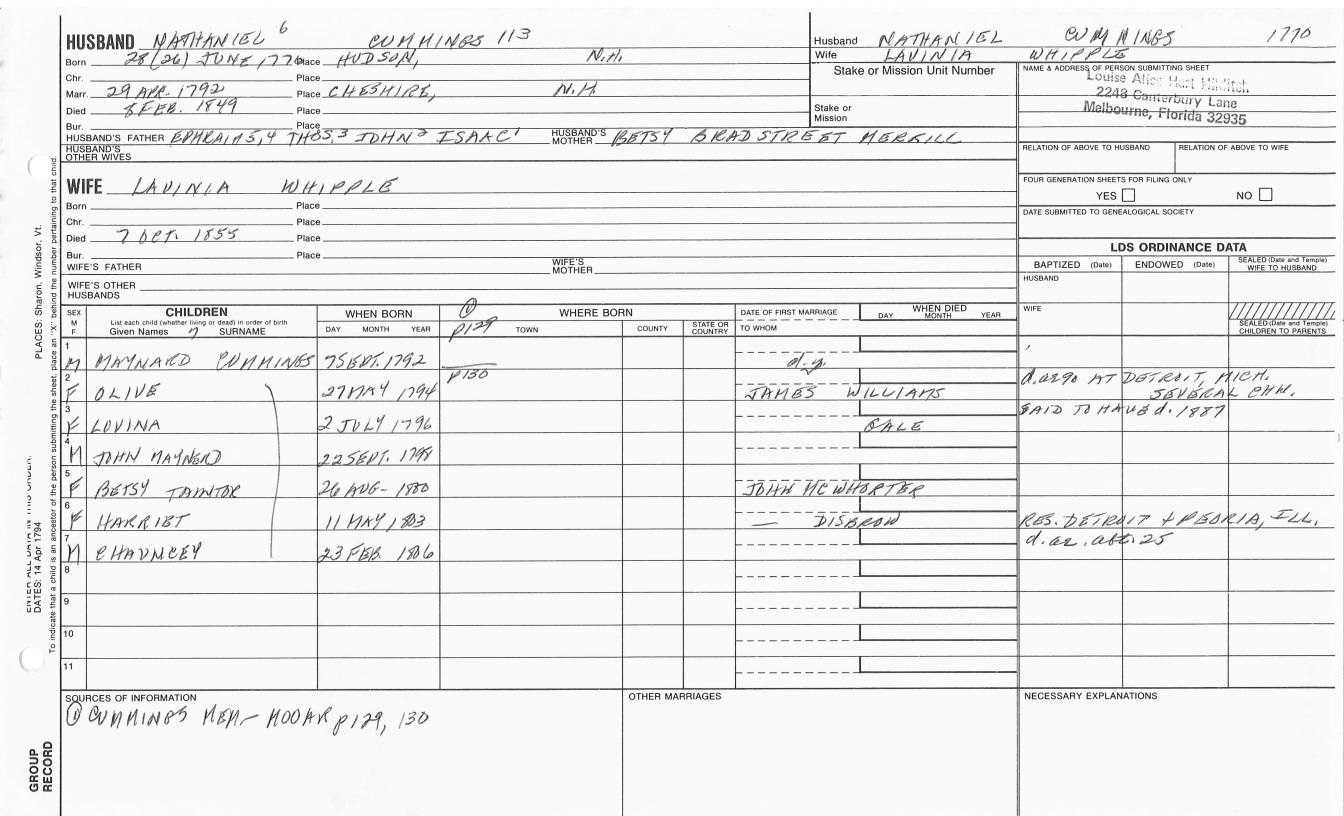 HUSBAND NATHANIEL 6 CUMMINGS 113
Born 28 (26) JUNE, 1770 Place HUDSON, N.H.
Chr. Place
Marr. 29 APR. 1792 Place CHESHIRE, N.H.
Died 8 FEB. 1849 Place
Bur. Place
HUSBAND'S FATHER EPHRAIM 5, 4 THOS. 3 JOHN 2 ISAAC 1 HUSBAND'S MOTHER BETSY BRADSTREET MERRILL
HUSBAND'S OTHER WIVES
Husband NATHANIEL CUMMINGS 1770
Wife LAVINIA WHIPPLE
Stake or Mission Unit Number
Stake or Mission
NAME & ADDRESS OF PERSON SUBMITTING SHEET
Louise Alice Hart
2248 Canterbury Lane
Melbourne, Florida 32935
RELATION OF ABOVE TO HUSBAND RELATION OF ABOVE TO WIFE
FOUR GENERATION SHEETS FOR FILING ONLY
YES NO
DATE SUBMITTED TO GENEALOGICAL SOCIETY
WIFE LAVINIA WHIPPLE
Born Place
Chr. Place
Died 7 OCT. 1855 Place
Bur. Place
WIFE'S FATHER WIFE'S MOTHER
WIFE'S OTHER HUSBANDS
LDS ORDINANCE DATA
BAPTIZED (Date) ENDOWED (Date) SEALED (Date and Temple) WIFE TO HUSBAND
HUSBAND
WIFE
SEALED (Date and Temple) CHILDREN TO PARENTS
SEX M F
CHILDREN
List each child (whether living or dead) in order of birth
Given Names 7 SURNAME
WHEN BORN
DAY MONTH YEAR
① P129
WHERE BORN
TOWN COUNTY STATE OR COUNTRY
DATE OF FIRST MARRIAGE
TO WHOM
WHEN DIED
DAY MONTH YEAR
1 M MAYNARD CUMMINGS 7 SEPT. 1792 d.y.
P130
2 F OLIVE 27 MAY 1794 JAMES WILLIAMS d. ae 90 AT DETROIT, MICH. SEVERAL CHN.
3 F LOVINA 2 JULY 1796 GALE SAID TO HAVE d. 1887
4 M JOHN MAYNERD 22 SEPT. 1798
5 F BETSY TAINTOR 26 AUG- 1800 JOHN MCWHORTER
6 F HARRIET 11 MAY 1803 — DISBROW RES. DETROIT + PEORIA, ILL.
7 M CHAUNCEY 23 FEB. 1806 d. ae. abt. 25
8
9
10
11
SOURCES OF INFORMATION
① CUMMINGS MEM - MOOAR p129, 130
OTHER MARRIAGES
NECESSARY EXPLANATIONS
PLACES: Sharon, Windsor, Vt.
To indicate that a child is an ancestor of the person submitting the sheet, place an "X" behind the number pertaining to that child.
ENTER ALL DATA IN THIS ORDER:
DATES: 14 Apr 1794
GROUP RECORD